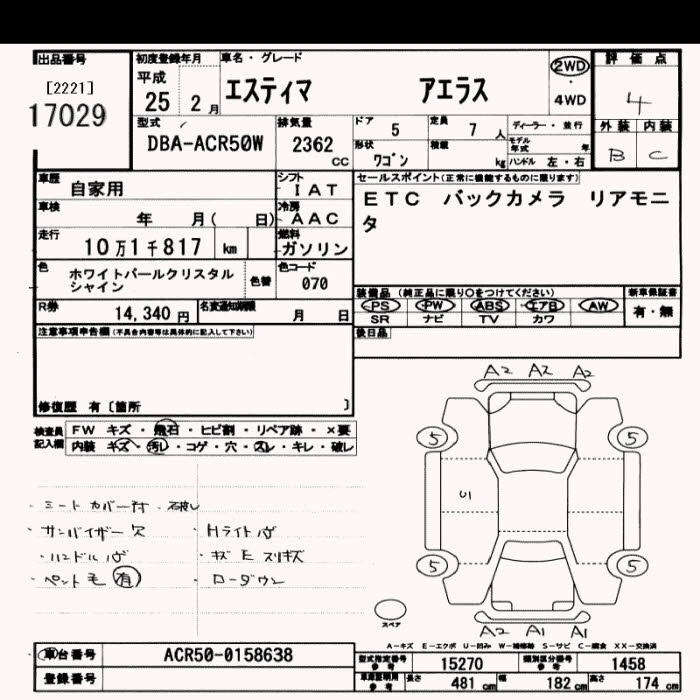 出品番号
[2221]
17029
初度登録年月
平成
25 2月
車名・グレード
エスティマ アエラス
2WD
・
4WD
評価点
4
外装 内装
B C
型式
DBA-ACR50W
排気量
2362
CC
ドア 5
定員 7 人
ディーラー・並行
形状 ワゴン
積載 kg
モデル年式 年
ハンドル 左・右
車歴
自家用
シフト
IAT
セールスポイント(正常に機能するものに限ります)
ETC バックカメラ リアモニタ
車検
年 月( 日)
冷房
AAC
走行
10万1千817 km
燃料
ガソリン
色
ホワイトパールクリスタル
シャイン
色替
色コード
070
装備品 (純正品に限り○をつけてください)
新車保証書
PS PW ABS エアB AW
有・無
SR ナビ TV カワ
R券
14,340 円
名変通知期限
月 日
後日品
注意事項申告欄(不具合内容等は具体的に記入して下さい)
修復歴 有〔箇所 〕
検査員
記入欄
FW キズ・飛石・ヒビ割・リペア跡・×要
内装 キズ・汚レ・コゲ・穴・スレ・キレ・破レ
・シートカバー付・破レ
・サンバイザー欠
・Hライトハゲ
・ハンドルハゲ
・キズ E スリキズ
・ペット毛有
・ローダウン
A2 A2 A2
5 5
U1
5 5
スペア
A2 A1 A1
A－キズ E－エクボ U－凹み W－補修跡 S－サビ C－腐食 XX－交換済
車台番号
ACR50-0158638
登録番号
型式指定番号
参考
15270
類別区分番号
参考
1458
車庫証明用
参考
長さ 481 cm
幅 182 cm
高さ 174 cm